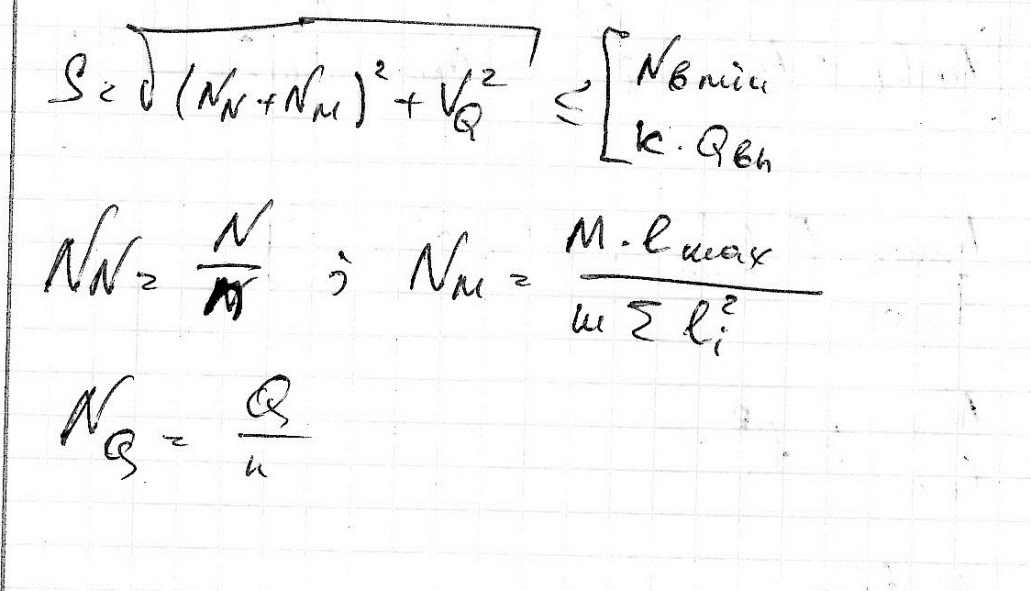 S = √((N_N + N_м)² + V_Q²) ≤ [N_bmin
k · Q_bh
N_N = N/n ; N_м = M · l_max / m Σ l_i²
N_Q = Q/n